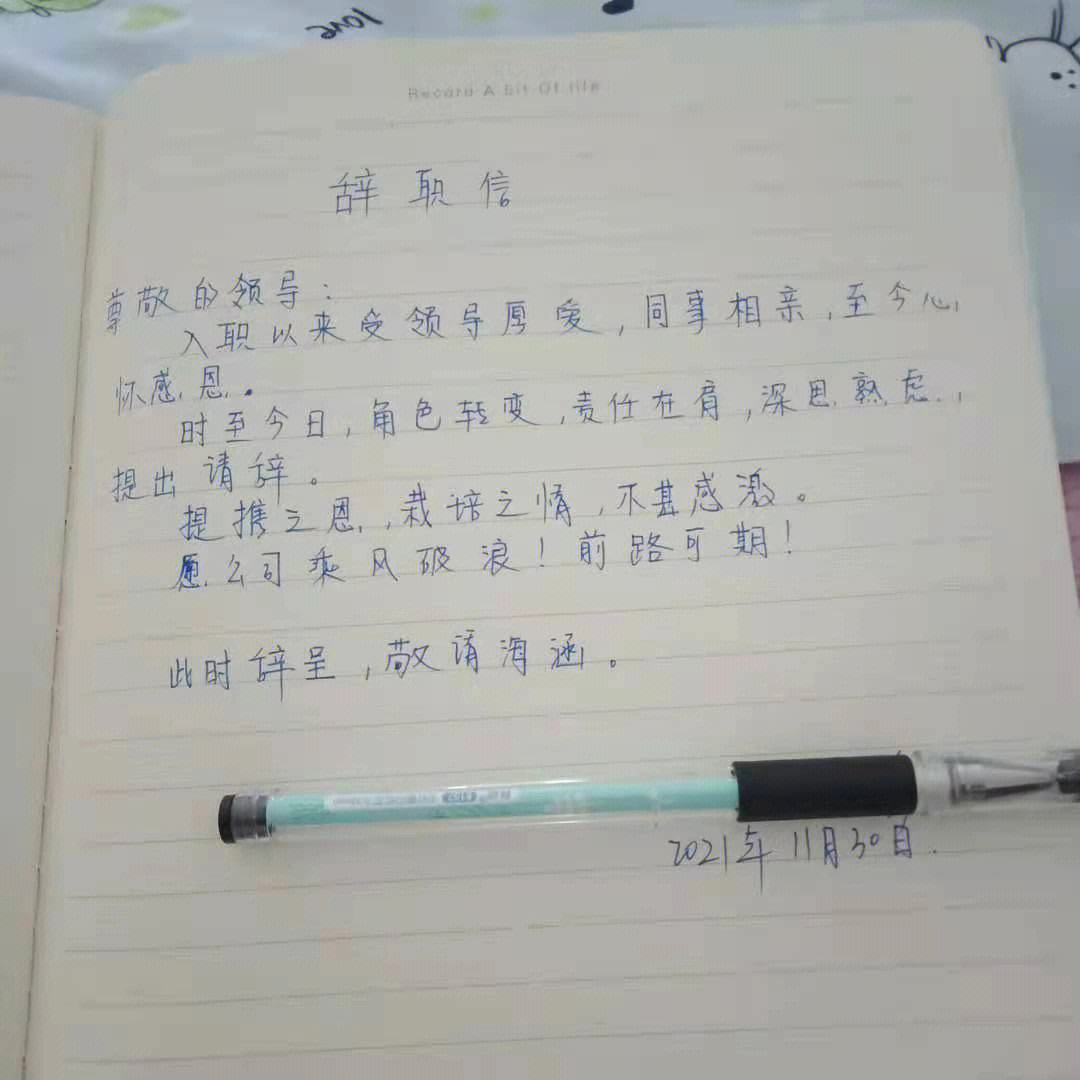 love
Record A bit Of life
辞职信
尊敬的领导:
入职以来受领导厚爱,同事相亲,至今心
怀感恩。
时至今日,角色转变,责任在肩,深思熟虑,
提出请辞。
提携之恩,栽培之情,不甚感激。
愿公司乘风破浪!前路可期!
此时辞呈,敬请海涵。
2021年11月30日.